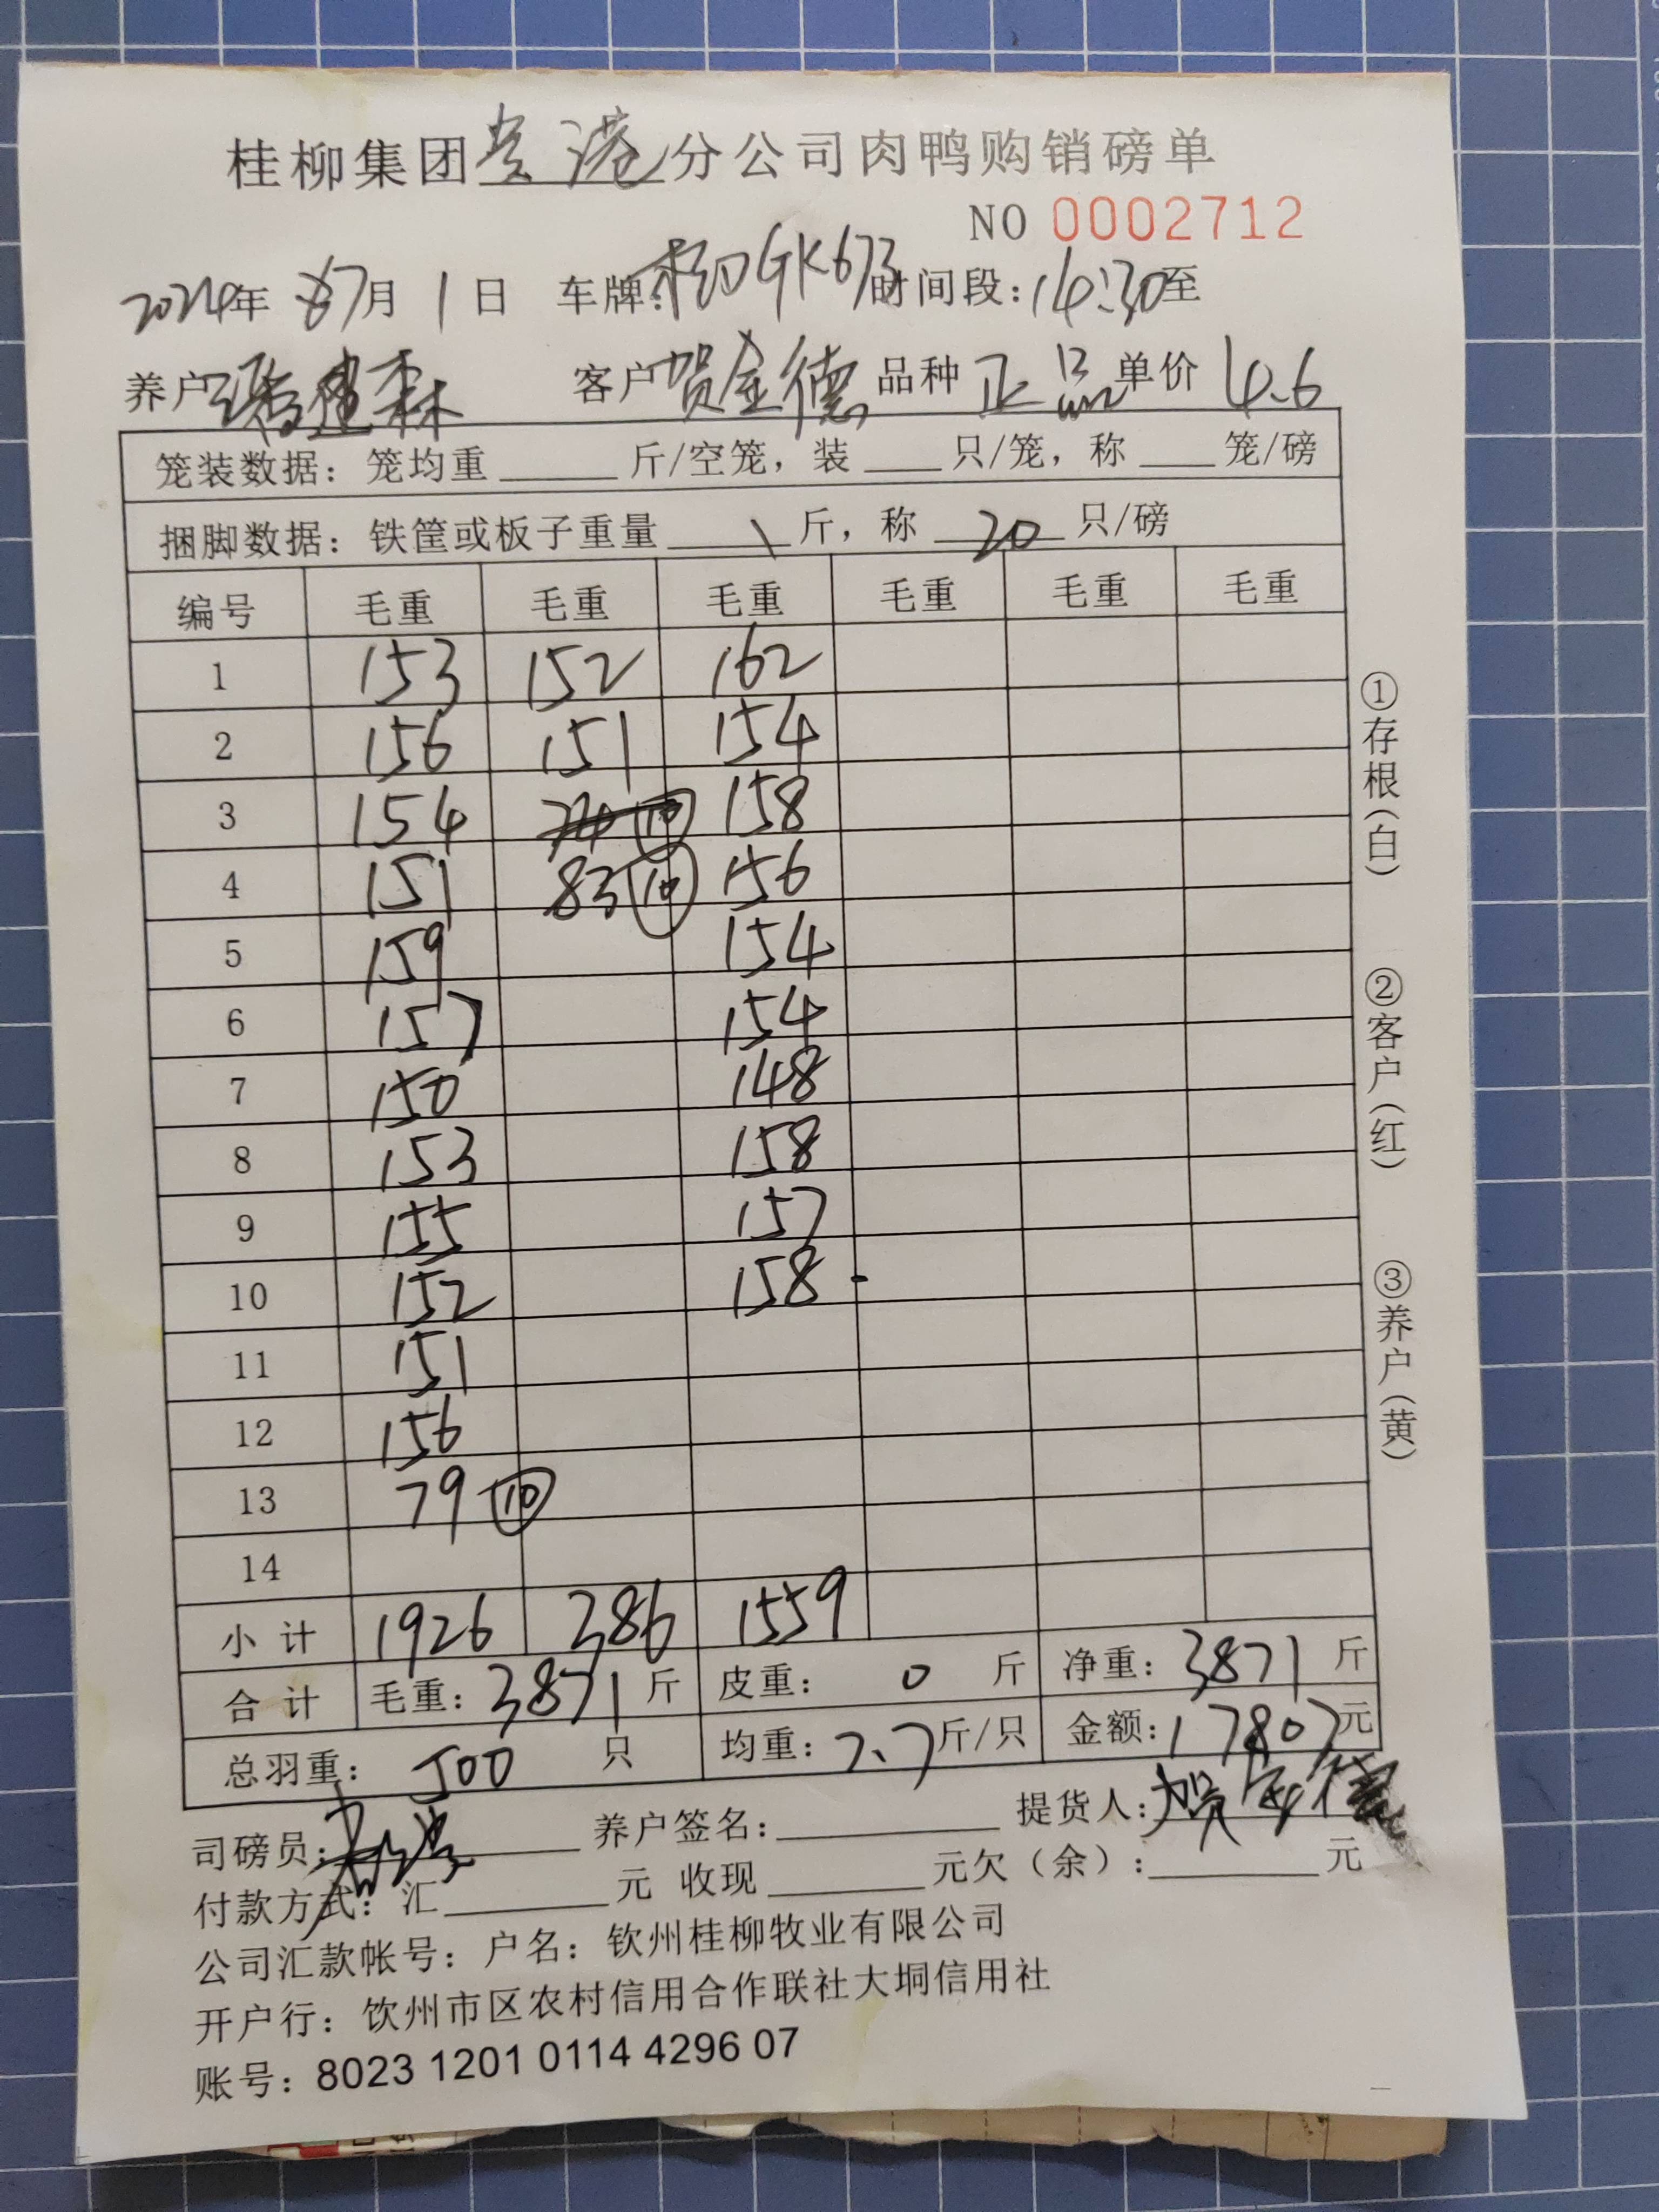 桂柳集团贵港分公司肉鸭购销磅单
NO 0002712
2024年 7月 1日 车牌:柳GK673时间段:14:30至
养户潘建森 客户贺金德品种正品单价4.6
笼装数据:笼均重____斤/空笼,装___只/笼,称___笼/磅
捆脚数据:铁筐或板子重量 \ 斤,称 20 只/磅
编号 毛重 毛重 毛重 毛重 毛重 毛重
1 153 152 162
2 156 151 154
3 154 ⑩ 158
4 151 83⑩ 156
5 159 154
6 157 154
7 150 148
8 153 158
9 155 157
10 152 158
11 151
12 156
13 79⑩
14
小计 1926 386 1559
合计 毛重:3871斤 皮重:0斤 净重:3871斤
总羽重:500只 均重:7.7斤/只 金额:17807元
司磅员: 养户签名:____ 提货人:贺金德
付款方式:汇____元 收现____元欠(余):____元
公司汇款帐号:户名:钦州桂柳牧业有限公司
开户行:饮州市区农村信用合作联社大垌信用社
账号:8023 1201 0114 4296 07
①存根(白) ②客户(红) ③养户(黄)